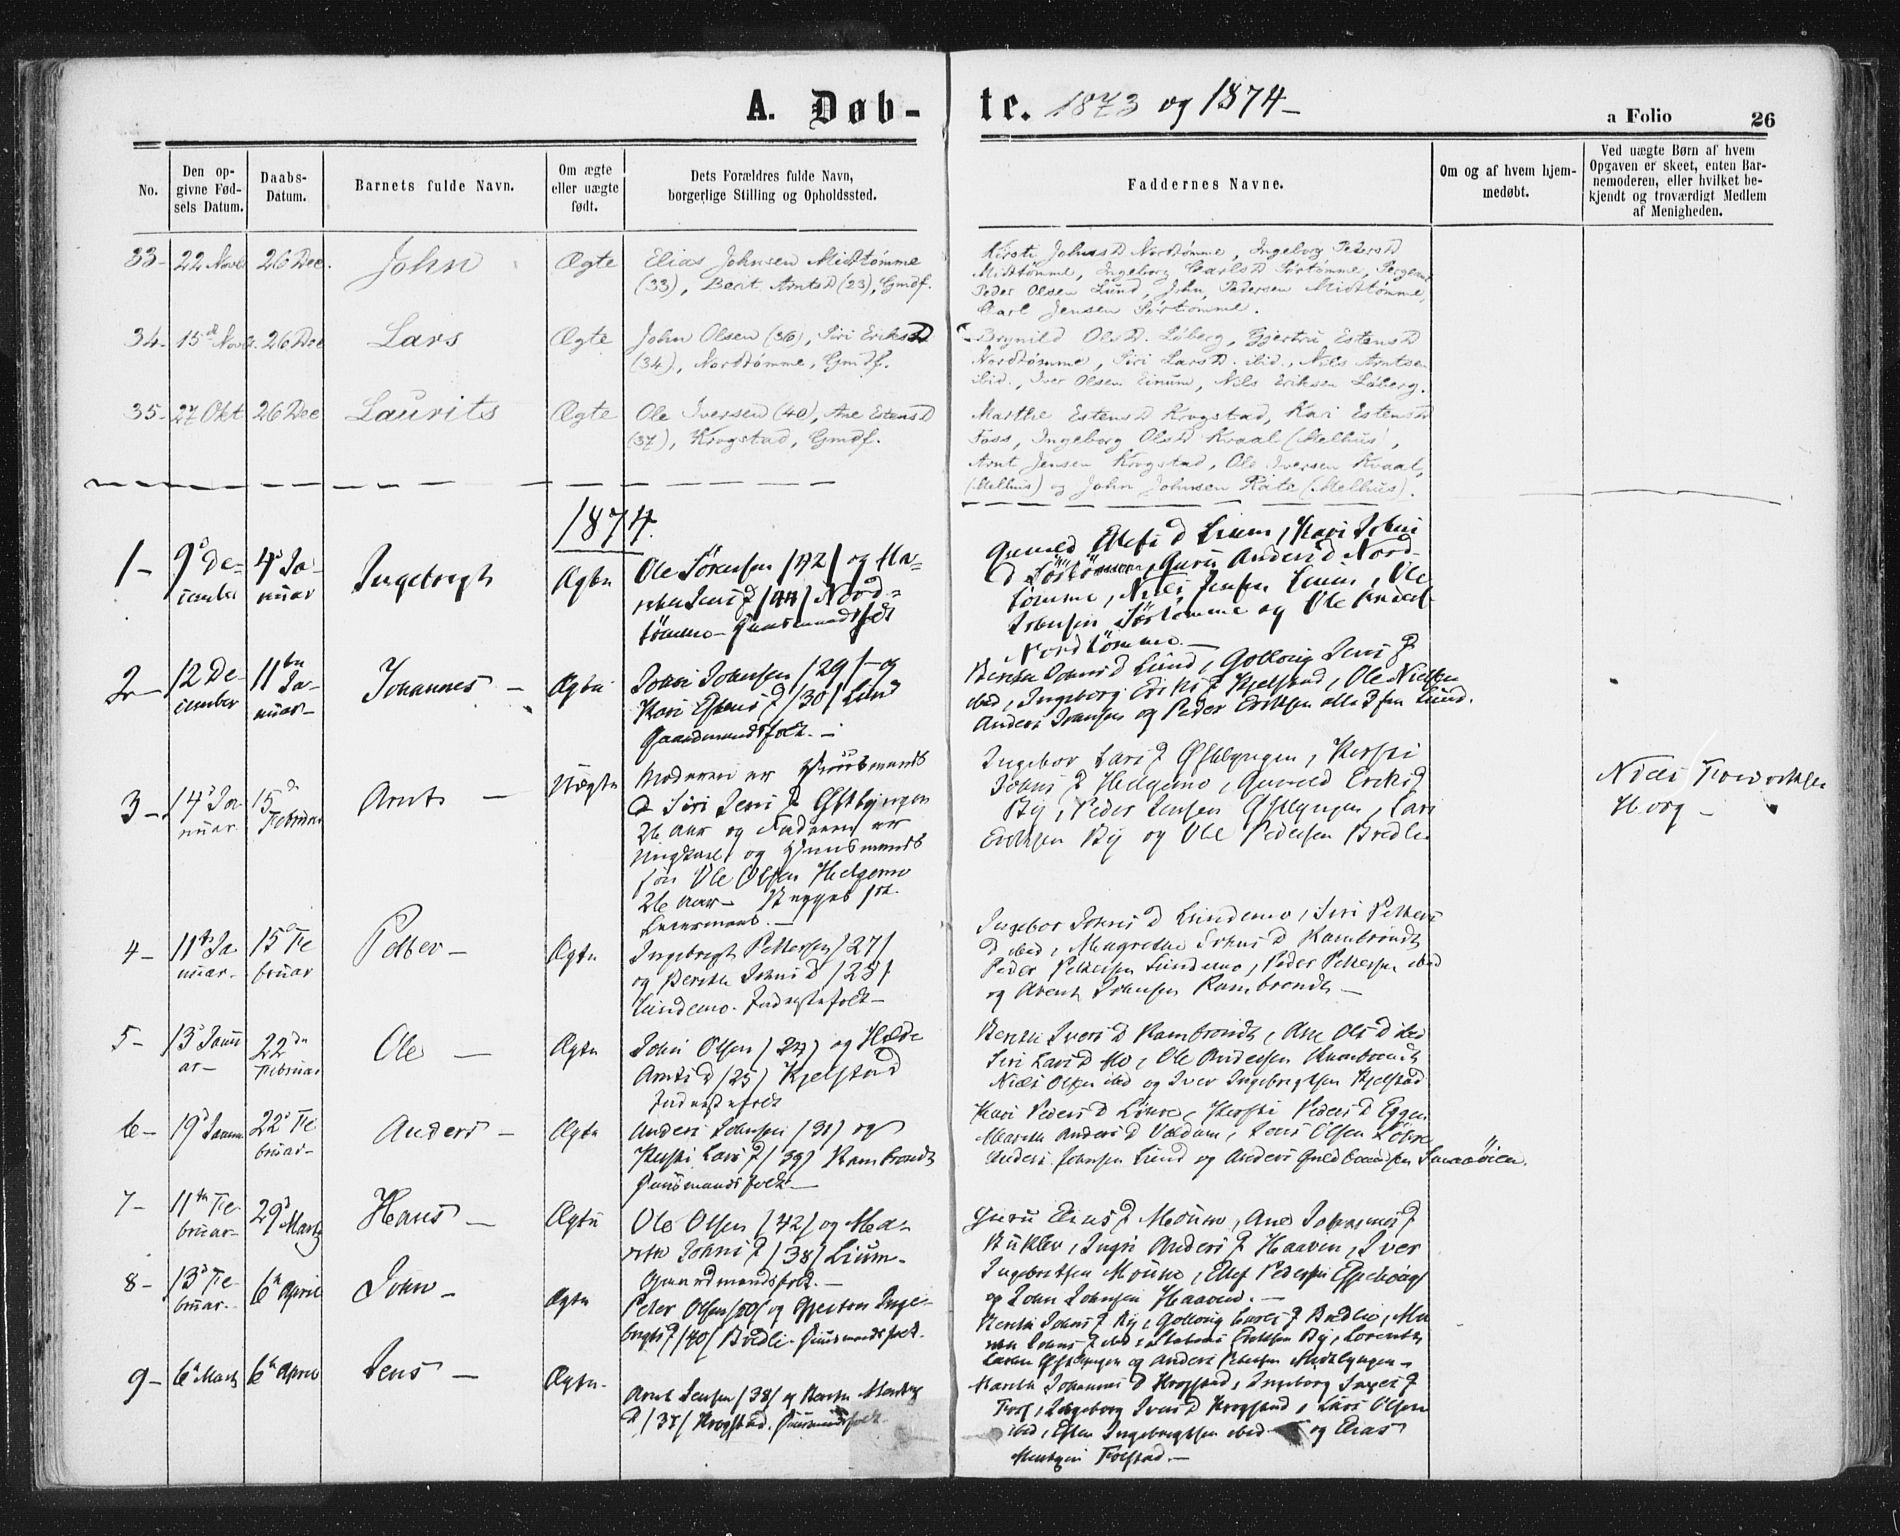 A. Døb- te. 1873 og 1874-
a Folio 26
No.
Den op-
givne Fød-
sels Datum.
Daabs-
Datum.
Barnets fulde Navn.
Om ægte
eller uægte
født.
Dets Forældres fulde Navn,
borgerlige Stilling og Opholdssted.
Faddernes Navne.
Om og af hvem hjem-
medøbt.
Ved uægte Børn af hvem
Opgaven er skeet, enten Bar-
nemoderen, eller hvilket be-
kjendt og troværdigt Medlem
af Menigheden.
33- 22 Novb 26 Dec. John Ægte
Elias Johnsen Midttømme
(33), Berit Arntsd (23), Gmdf.
Kirsti Johnsd Nordtømme, Ingeborg Pedersd
Midttømme, Ingeborg Carlsd Sørtømme,
Peder Olsen Lund, John Pedersen Midttømme,
Carl Jensen Sørtømme.
34- 15d Novb. 26 Dec Lars Ægte
John Olsen (36), Siri Eriksd
(34), Nordtømme, Gmdf.
Brynild Olsd. Løberg, Gjertru Estensd
Nordtømme, Siri Larsd ibid., Nils Arntsen
ibid., Iver Olsen Einum, Nils Eriksen Løberg.
35- 27 Okt 26 Dec Laurits Ægte
Ole Iversen (40), Ane Estensd
(37), Krogstad, Gmdf.
Marthe Estensd Krogstad, Kari Estensd
Foss, Ingeborg Olsd Kvaal (Melhus),
Arnt Jensen Krogstad, Ole Iversen Kvaal,
(Melhus) og John Johnsen Rate (Melhus).
1874.
1- 9d De-
cember
4d Ja-
nuar
Ingebrigt
Ægte
Ole Sørensen /42/ og Ma-
rethe Jensd /44/ Nord-
tømme- Gaardmandsfolk
Gunild Ellefsd Lium, Kari Johns
d Sørtømme, Guru Andersd Nord-
tømme, Niels Jensen Lium, Ole
Johnsen Sørtømme og Ole
Nordtømme.-
2- 12 De-
cember
11te
Ja-
nuar-
Johannes-
Ægte
John Johnsen /29/- og
Kari Estensd /30/ Lund
Gaardmandsfolk.-
Berethe Johnsd Lund, Gollaug Jensd
ibid, Ingeborg Eriksd Kjelstad, Ole Nielsen
Anders Johnsen og Peder Eriksen alle 3 fra Lund.
3- 14d Ja-
nuar
15d
Februar
Arnt-
Uægte
Moderen er Huusmands
d Siri Jensd Østlyngen
26 Aar og Faderen er
Ungkarl og Huusmands
søn Ole Olsen Helgemo
26 Aar- Begges 1ste
Leiermaal.-
Ingebor Larsd Østlyngen, Kirsti
Johnsd Helgemo, Gunild Eriksd
By, Peder Jensen Østlyngen, Lars
Eriksen By og Ole Pedersen Bredlie
Horg-
4- 11te Ja
nuar-
15d Fe
bruar
Petter-
Ægte
Ingebrigt Pettersen /27/
og Berethe Johnsd /28/
Lundemo. Inderstfolk-
Ingebor Johnsd Lundemo, Siri Petters
d ibid, Magrethe Johnsd Rambrondt
Peder Pettersen Lundemo, Peder Pettersen ibid
og Arent Johnsen Rambrondt-
5- 13d Janu
ar-
22de
Februar
Ole-
Ægte
John Olsen /24/ og
Arntsd /25/ Kjelstad
Inderstefolk
Berethe Iversd Rambrondt, Ane Olsd ibid
Siri Larsd Mo, Ole Andersen Rambrondt
Niels Olsen ibid og Iver Ingebrigtsen Kjelstad
6- 19d Januar 22d Fe
bruar-
Anders-
Ægte
Anders Johnsen /31/ og
Kirsti Larsd /39/ Rambrondt
Huusmandsfolk-
Kari Pedersd Løhre, Kirsti Pedersd Eggen
Marethe Andersd Valdum, Jens Olsen Løhre
Anders Johnsen Lund og Anders Guldbrandsen Smaaöien.
7- 11te Fe-
bruar-
29d Marts
Hans-
Ægte
Ole Olsen /42/ og Ma-
rethe Johnsd /38/ Lium-
Gaardmandsfolk.-
Guru Eliasd Mosume, Ane Johannesd
Buklev, Ingri Andersd Haaven, Iver
Ingebretsen Mosume, Ellef Pedersen Espehaug
og John Johnsen Haaven.-
8- 13d Fe-
bruar-
6te April
John-
Ægte
Peter Olsen /50/ og Gjertru Inge-
brigtsd /40/ Bredli- Huusmandsfolk.
Berethe Johnsd By, Gollaug Larsd Bredlie, Ma
rethe Johnsd ibid, Eriksen By, Lorents
Larsen Østlyngen og Anders Petersen Midtlyngen-
9- 6te Marts 6te April Jens-
Ægte-
Arnt Jensen /38/ og Berethe
d /37/ Krogstad. Huusmandsfolk.
Marethe Johannesd Krogstad, Ingeborg
Foss, Ingeborg Iversd Krogstad, Lars Olsen
ibid, Esten Ingebrigtsen ibid og Elias
Mentzen Folstad.-